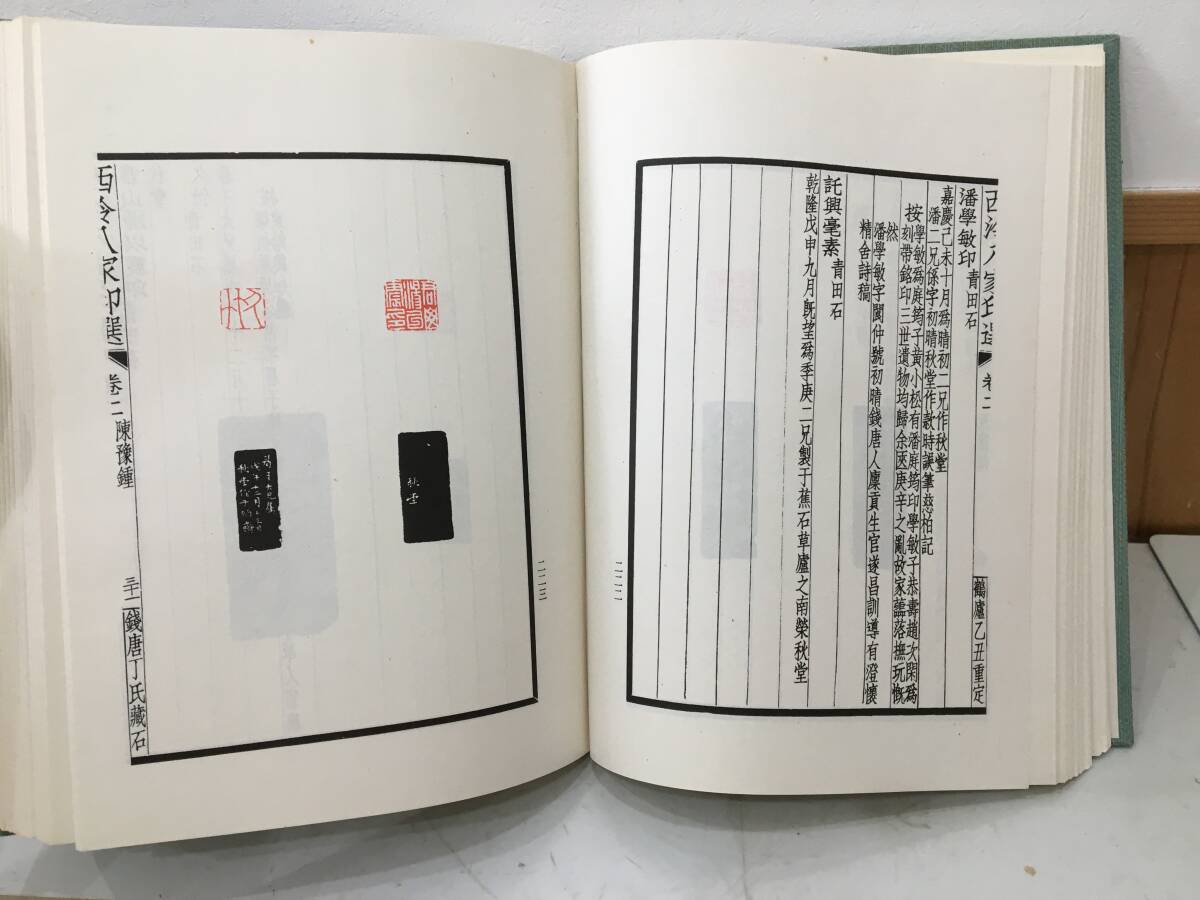 西泠八家印選 卷二
鶴廬乙丑重定
潘學敏印 青田石
嘉慶己未十月爲晴初二兄作秋堂
潘二兄係字初晴秋堂作款時誤筆慈柏記
按學敏爲庭筠子黃小松有潘庭筠印學敏子恭壽趙次閑爲
刻帶銘印三世遺物均歸余匧庚辛之亂故家蕩落撫玩慨
然
潘學敏字闇仲號初晴錢唐人廩貢生官遂昌訓導有澄懷
精舍詩稿
託興毫素 青田石
乾隆戊申九月既望爲季庚二兄製于蕉石草廬之南榮秋堂
二二二
二二三
秋堂
西泠八家印選 卷二 陳豫鍾
三十一 錢唐丁氏藏石